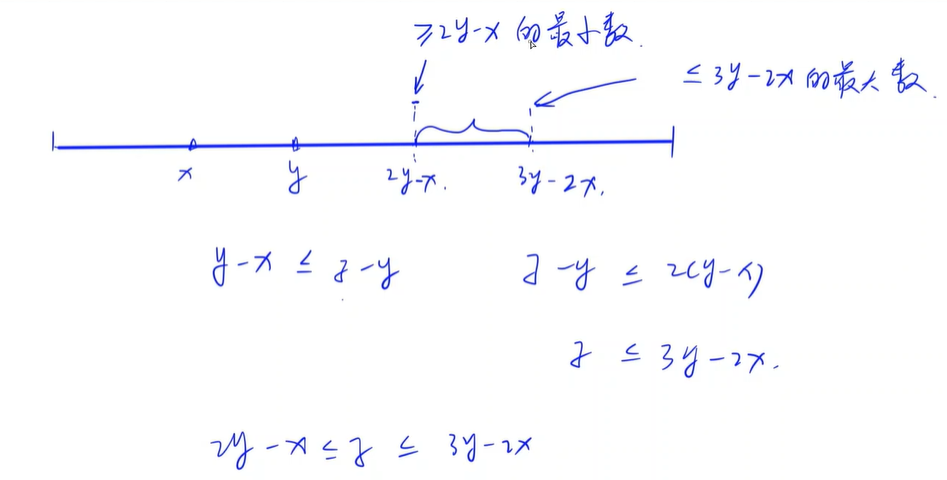 ≥2y-x 的最小数.
≤3y-2x 的最大数.
x y 2y-x. 3y-2x.
y-x ≤ z-y z-y ≤ 2(y-x)
z ≤ 3y-2x.
2y-x ≤ z ≤ 3y-2x